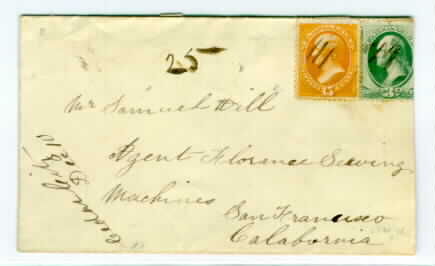 25
Mr Samuel Hill
Agent Florence Sewing
Machines
San Francisco
Calabornia
Cedar City
Dec 10